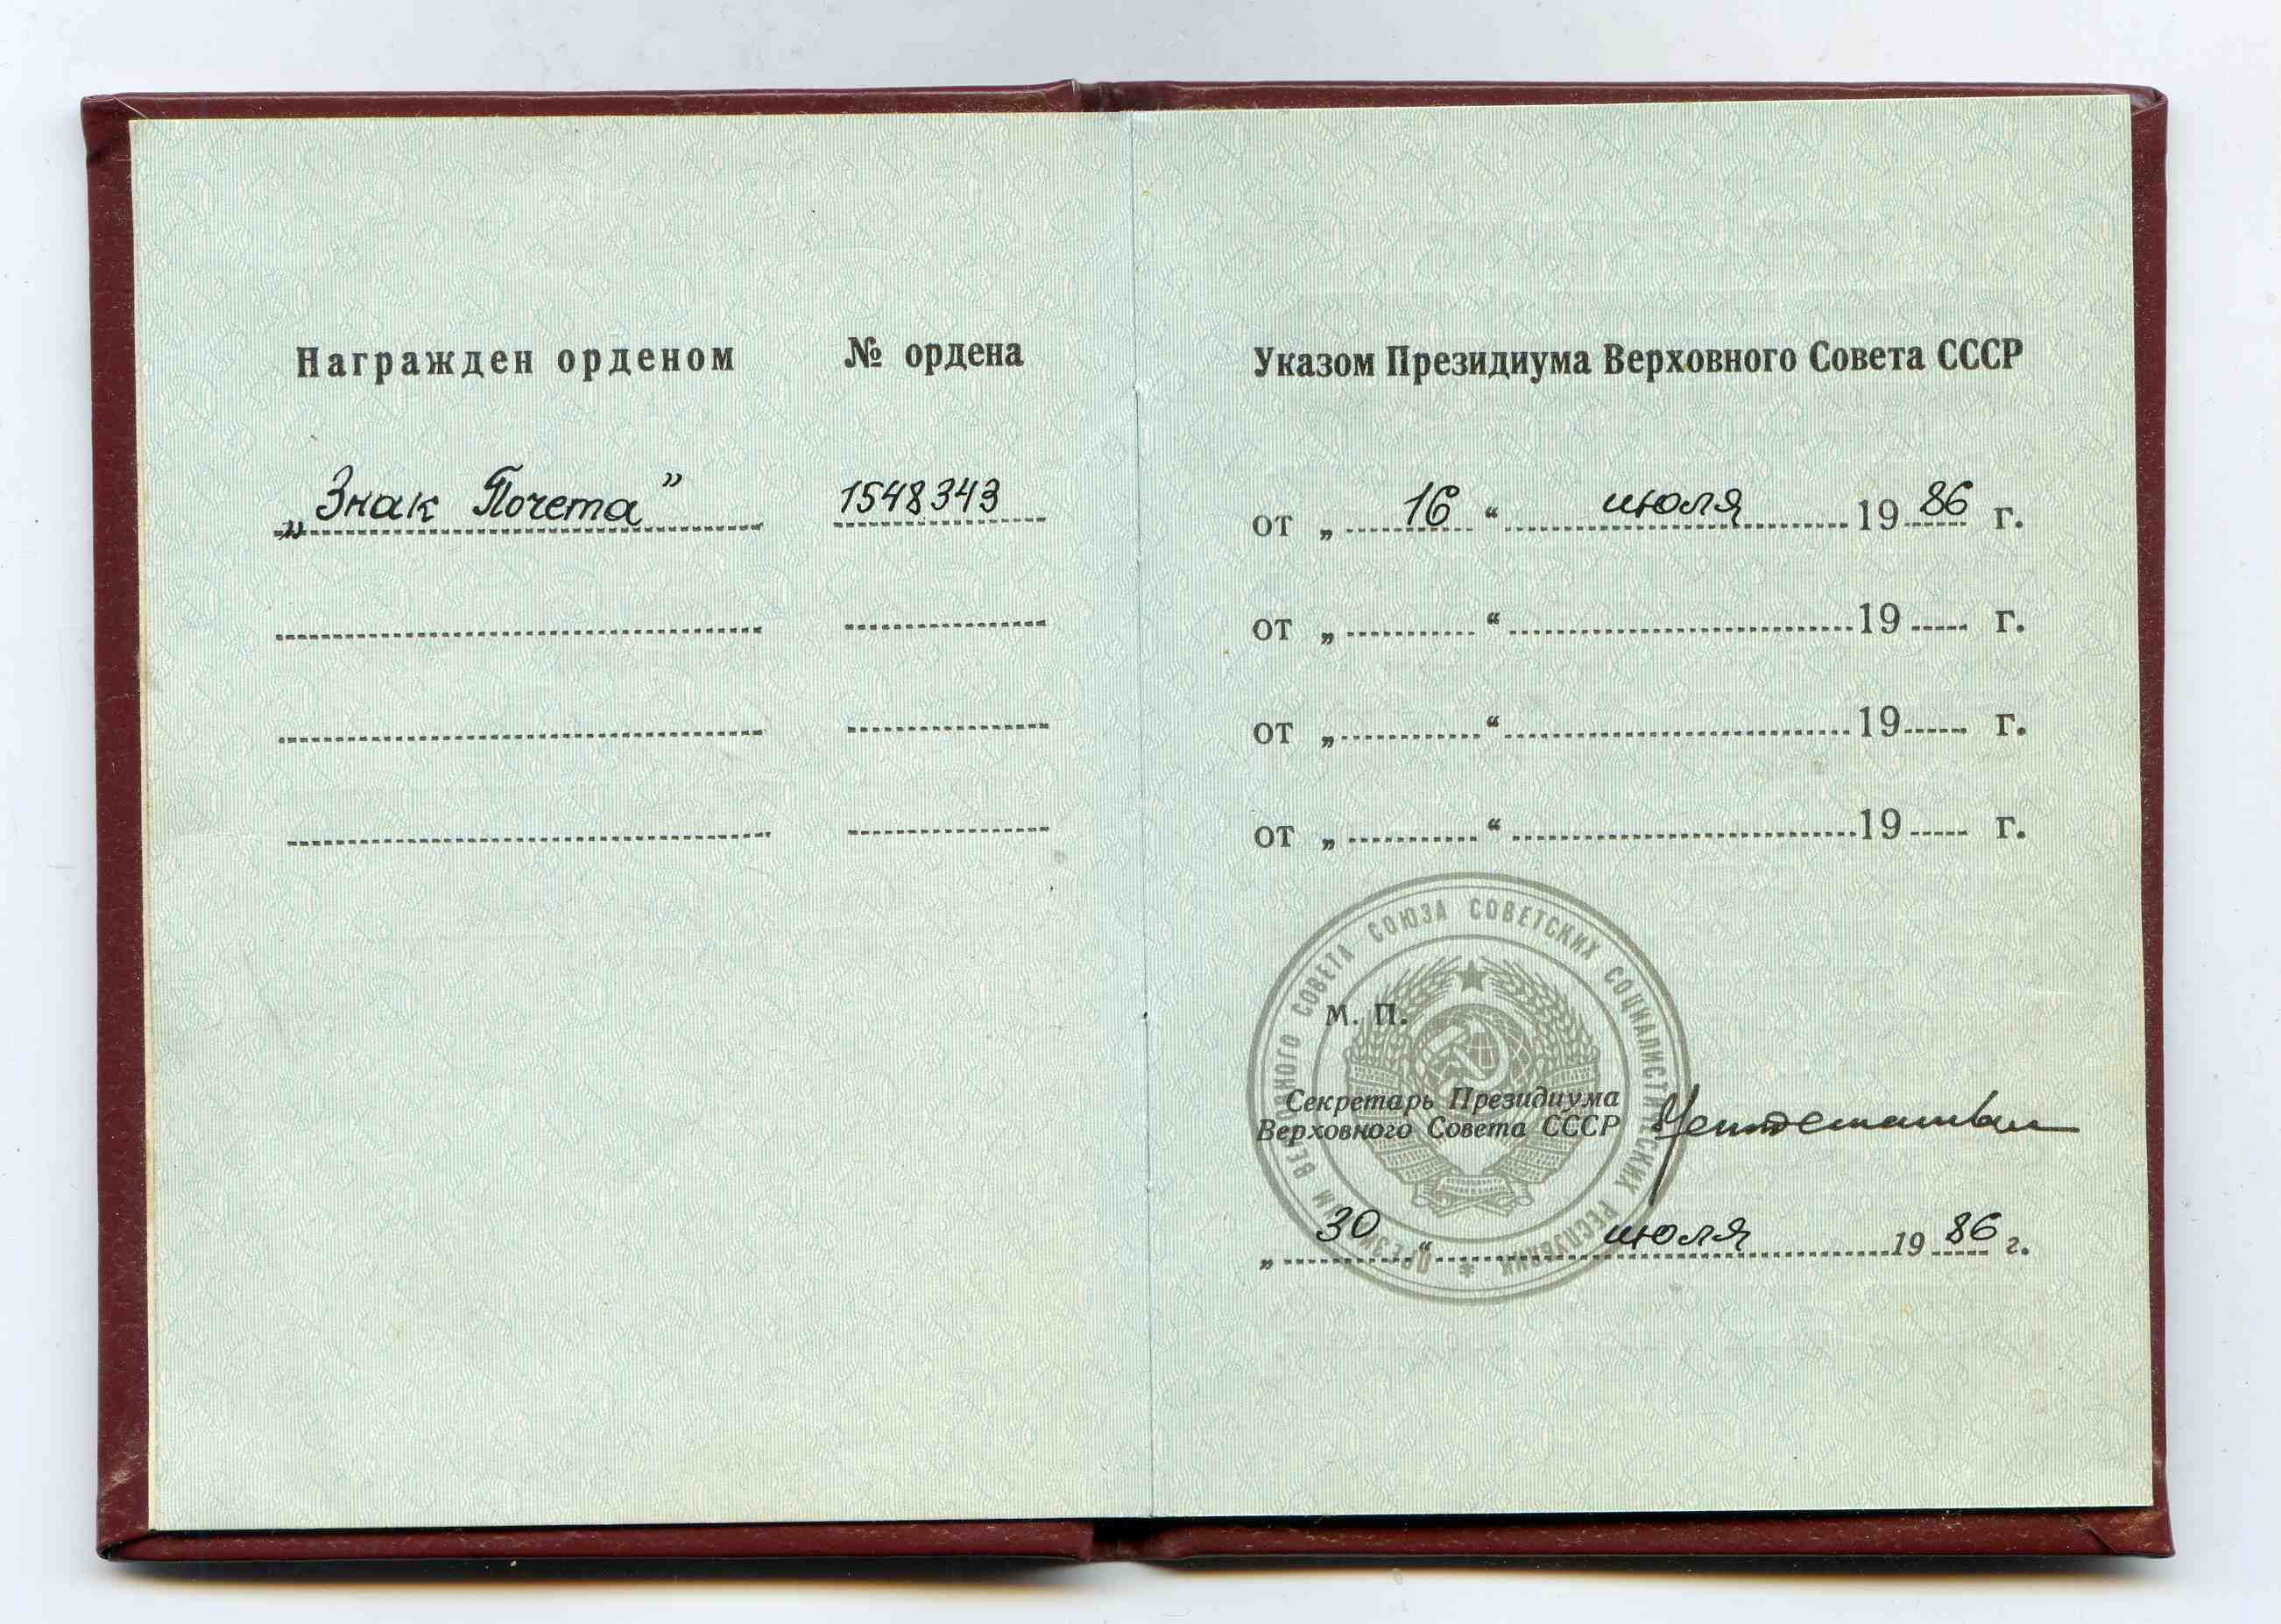 Награжден орденом № ордена
„Знак Почета” 1548343
Указом Президиума Верховного Совета СССР
от „ 16 “ июля 19 86 г.
от „ “ 19 г.
от „ “ 19 г.
от „ “ 19 г.
ПРЕЗИДИУМ ВЕРХОВНОГО СОВЕТА СОЮЗА СОВЕТСКИХ СОЦИАЛИСТИЧЕСКИХ РЕСПУБЛИК *
М. П.
Секретарь Президиума
Верховного Совета СССР
„ 30 “ июля 19 86 г.